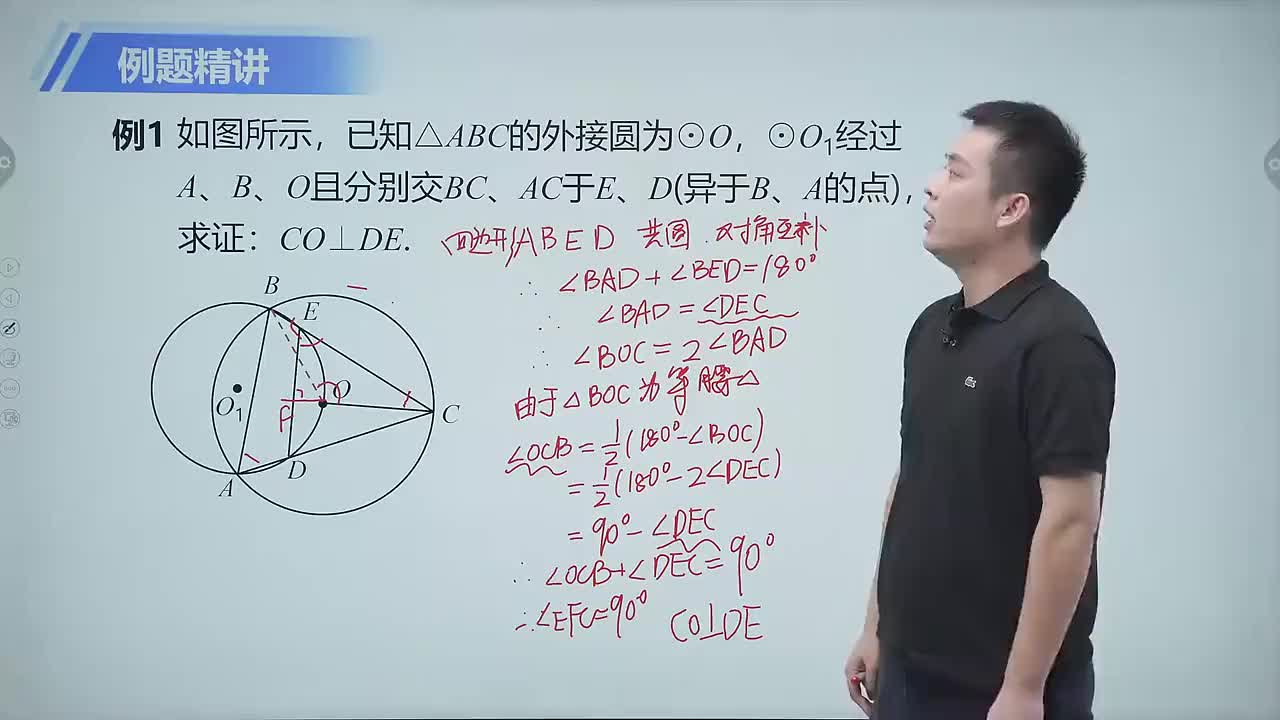 例题精讲
例1 如图所示，已知△ABC的外接圆为⊙O，⊙O₁经过
A、B、O且分别交BC、AC于E、D(异于B、A的点)，
求证：CO⊥DE.
四边形ABED 共圆 对角互补
∴ ∠BAD+∠BED=180°
∴ ∠BAD=∠DEC
∴ ∠BOC=2∠BAD
由于△BOC为等腰△
∠OCB=1/2(180°-∠BOC)
=1/2(180°-2∠DEC)
=90°-∠DEC
∴ ∠OCB+∠DEC=90°
∴∠EFC=90° CO⊥DE
B
E
O
O₁
F
C
D
A